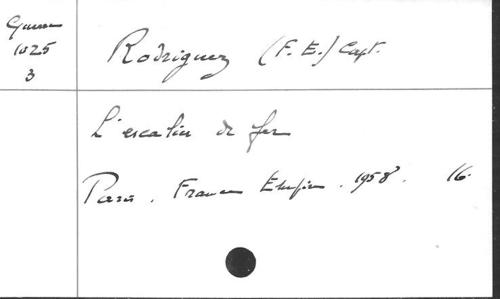 Guerre
1025
3
Rodriguez (F. E.) Capt.
L'escalier de fer
Paris. France Empire. 1958. 16.